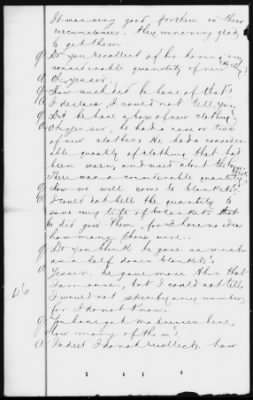 It was very good for them in their
circumstances. They were very glad
to get them
Q Do you recollect of his having any
considerable quantity of rice
A Oh yes sir.
Q How much did he have of that?
A I declare, I could not tell you
Q Did he have a box of new clothing?
A Oh yes sir, he had a case or two
of new clothes. He had a consider-
able quantity of clothing that had
been worn, and used about the
There was a considerable quantity
Q Now we will come to blankets?
A I could not tell the quantity to
save my life of blankets that
he did give them, for I have no idea
how many there were.
Q Do you think he gave as much
as a half dozen blankets?
A Yes sir. he gave more than that
I am sure, but I could not tell
I would not specify any number,
for I do not know.
Q You have got molasses here,
how many of them?
A Indeed I do not recollect, how
46